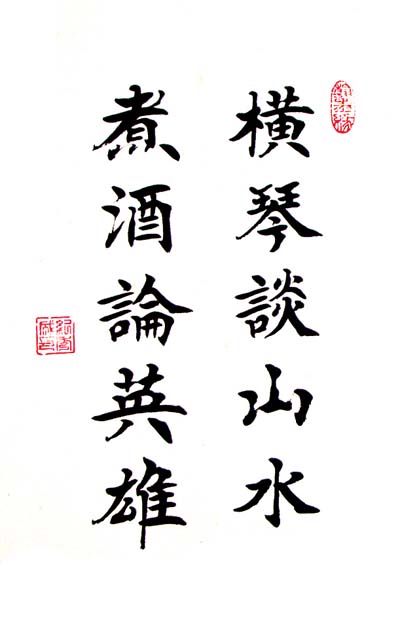 橫琴談山水
煮酒論英雄